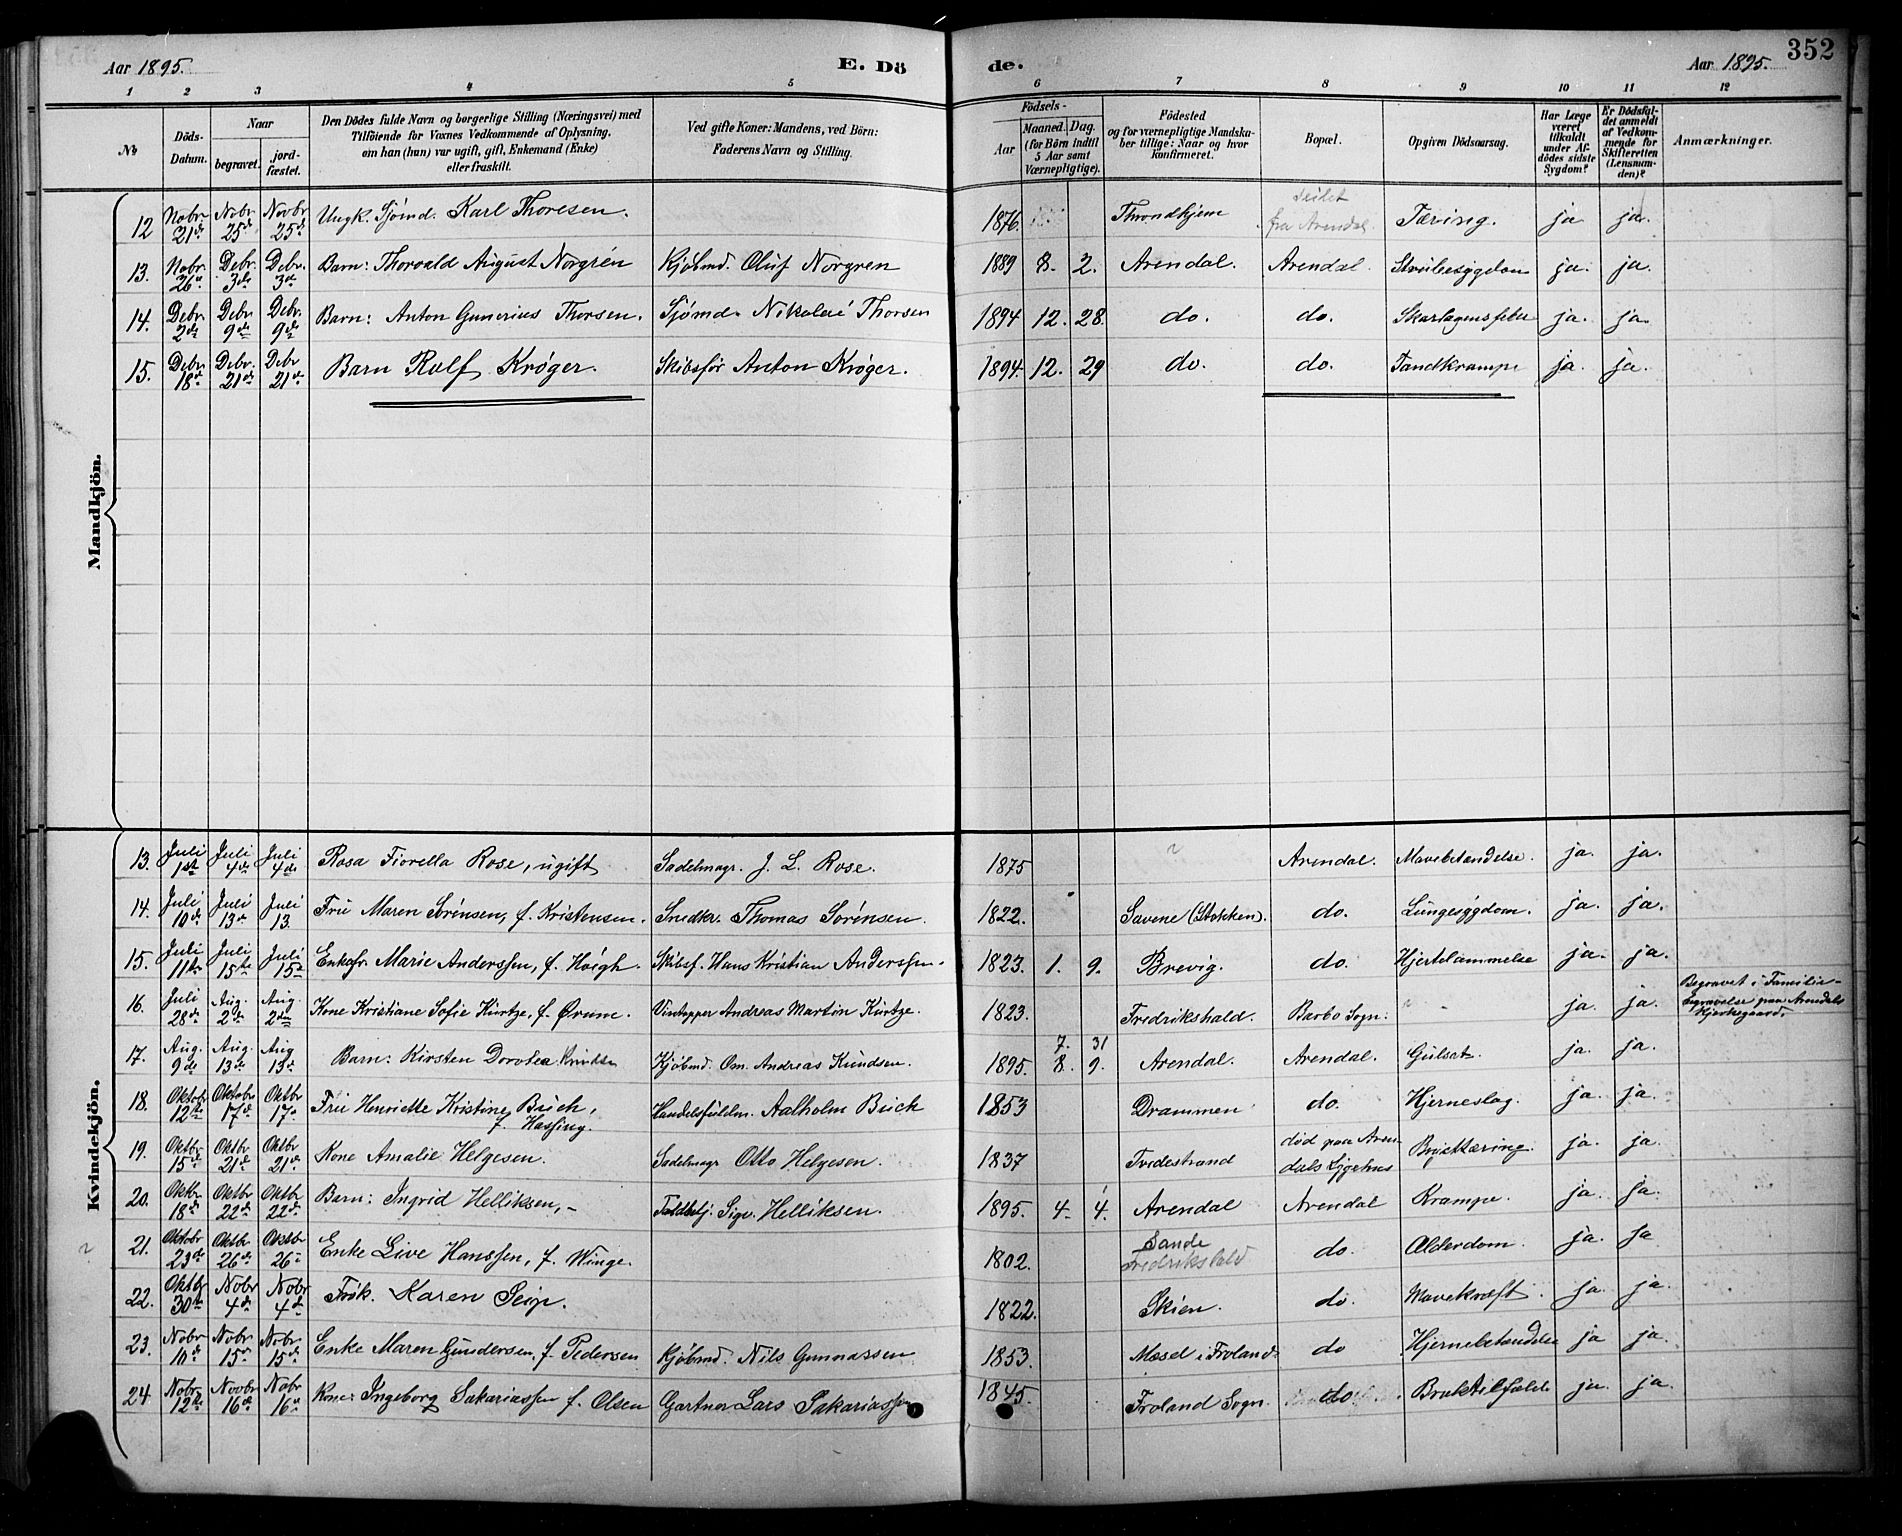 352
Aar 1895. E. Dö de. Aar 1895.
1 2 3 4 5 6 7 8 9 10 11 12
No. Döds-Datum. Naar begravet. jordfæstet. Den Dödes fulde Navn og borgerlige Stilling (Næringsvei) med Tilföiende for Voxnes Vedkommende af Oplysning, om han (hun) var ugift, gift, Enkemand (Enke) eller fraskilt. Ved gifte Koner: Mandens, ved Börn: Faderens Navn og Stilling. Födsels- Aar Maaned. Dag. (for Börn indtil 5 Aar samt Værnepligtige). Födested og for værnepligtige Mandskaber tillige: Naar og hvor konfirmeret. Bopæl. Opgiven Dödsaarsag. Har Læge været tilkaldt under Afdödes sidste Sygdom? Er Dödsfaldet anmeldt af Vedkommende for Skifteretten (Lensmanden)? Anmærkninger.
Mandkjön.
12 Nobr. 21de Nobr. 25de Novbr 25de Ungk. Sjømd. Karl Thoresen. 1876 Throndhjem fra Arendal. Tæring. ja ja.
13. Nobr. 26de Debr. 3de Debr. 3de Barn: Thorvald August Norgrén Kjøbmd. Oluf Norgren 1889 8. 2. Arendal. Arendal. ja. ja.
14. Debr. 2de Debr. 9de Debr. 9de Barn: Anton Gunerius Thorsen. Sjømd. Nikolai Thorsen 1894 12. 28. do. do. Skarlagensfeber ja. ja.
15. Debr. 18de Debr. 21de Debr 21de Barn Rolf Krøger. Skibsfør Anton Krøger. 1894. 12. 29 do. do. Tandkrampe ja. ja.
Kvindekjön.
13. Juli 1st Juli 4de Juli 4de Rosa Fiorella Rose, ugift Sadelmagr. J. L. Rose. 1875 Arendal. Mavebetændelse. ja. ja.
14. Juli 10de Juli 13de Juli 13. Fru Maren Sørensen, f. Kristensen. Snedkr. Thomas Sørensen. 1822. Savene (Stokken). do. Lungesygdom. ja. ja.
15. Juli 11te Juli 15te Juli 15de Enkefr. Marie Anderssen, f. Høigh. Skibsf. Hans Kristian Anderssen. 1823. 1. 9. Brevig. do. Hjertelammelse ja. ja.
16. Juli 28de Aug. 2de Aug. 2den Kone Kristiane Sofie Kurtze, f. Ørum. Vintapper Andreas Martin Kurtze. 1823. Fredrikshald. Barbo Sogn. - ja. ja. Begravet i Familie-begravelse paa Arendals Kjerkegaard.
17. Aug. 9de Aug. 13de Aug 13de Barn: Kirsten Dorotea Knudsen Kjøbmd. Om. Andreas Knudsen. 1895. 7. 8. 31 9. Arendal. Arendal. Gulsot. ja. ja.
18. Oktobr 12te Oktobr 17de Oktbr 17de Fru Henriette Kristine Buch, f. Hassing. Handelsfuldm. Aalholm Buch 1853 Drammen do. Hjerneslag. ja. ja.
19. Oktbr. 15de Oktbr 21de Oktbr 21de Kone Amalie Helgesen. Sadelmagr Otto Helgesen. 1837 Tvedestrand død paa Arendals Sygehus Brysttæring. ja. ja.
20. Oktbr 18de Oktbr 22de Oktbr 22de Barn: Ingrid Helliksen, - Toldbetj. Sigv. Helliksen. 1895. 4. 4. Arendal Arendal Krampe. ja. ja.
21. Oktobr 23de Oktbr. 26de Oktbr 26 Enke Live Hanssen, f. Winge. 1802. Sande Fredrikshald do. Alderdom. ja. ja
22. Oktbr 30te Nobr 4de Nobr 4de Frøk. Karen Seip. 1822. Skien. do. Mavekræft. ja. ja.
23. Nobr 10de Nobr. 15de Nobr. 15de Enke Maren Gundersen, f. Pedersen Kjøbmd. Nils Gunnassen 1853. Mæsel i Froland. do Hjernebetændelse ja ja.
24. Nobr. 12te Novbr 16de Nobr 16de Kone Ingeborg Sakariassen f. Olsen Gartner Lars Sakariassen 1845. Froland Sogn. do Bruktilfælde ja. ja.